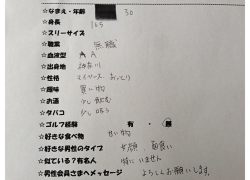 ☆なまえ・年齢 30
☆身長 165
☆スリーサイズ
☆職業 無職
☆血液型 A
☆出身地 神奈川
☆性格 マイペース おっとり
☆趣味 買い物
☆お酒 少し飲む
☆タバコ 少し
☆ゴルフ経験 有・無
☆好きな食べ物 甘い物
☆好きな男性のタイプ 面白い
☆似ている?有名人 特にいません
☆男性会員さまへメッセージ よろしくお願いします。